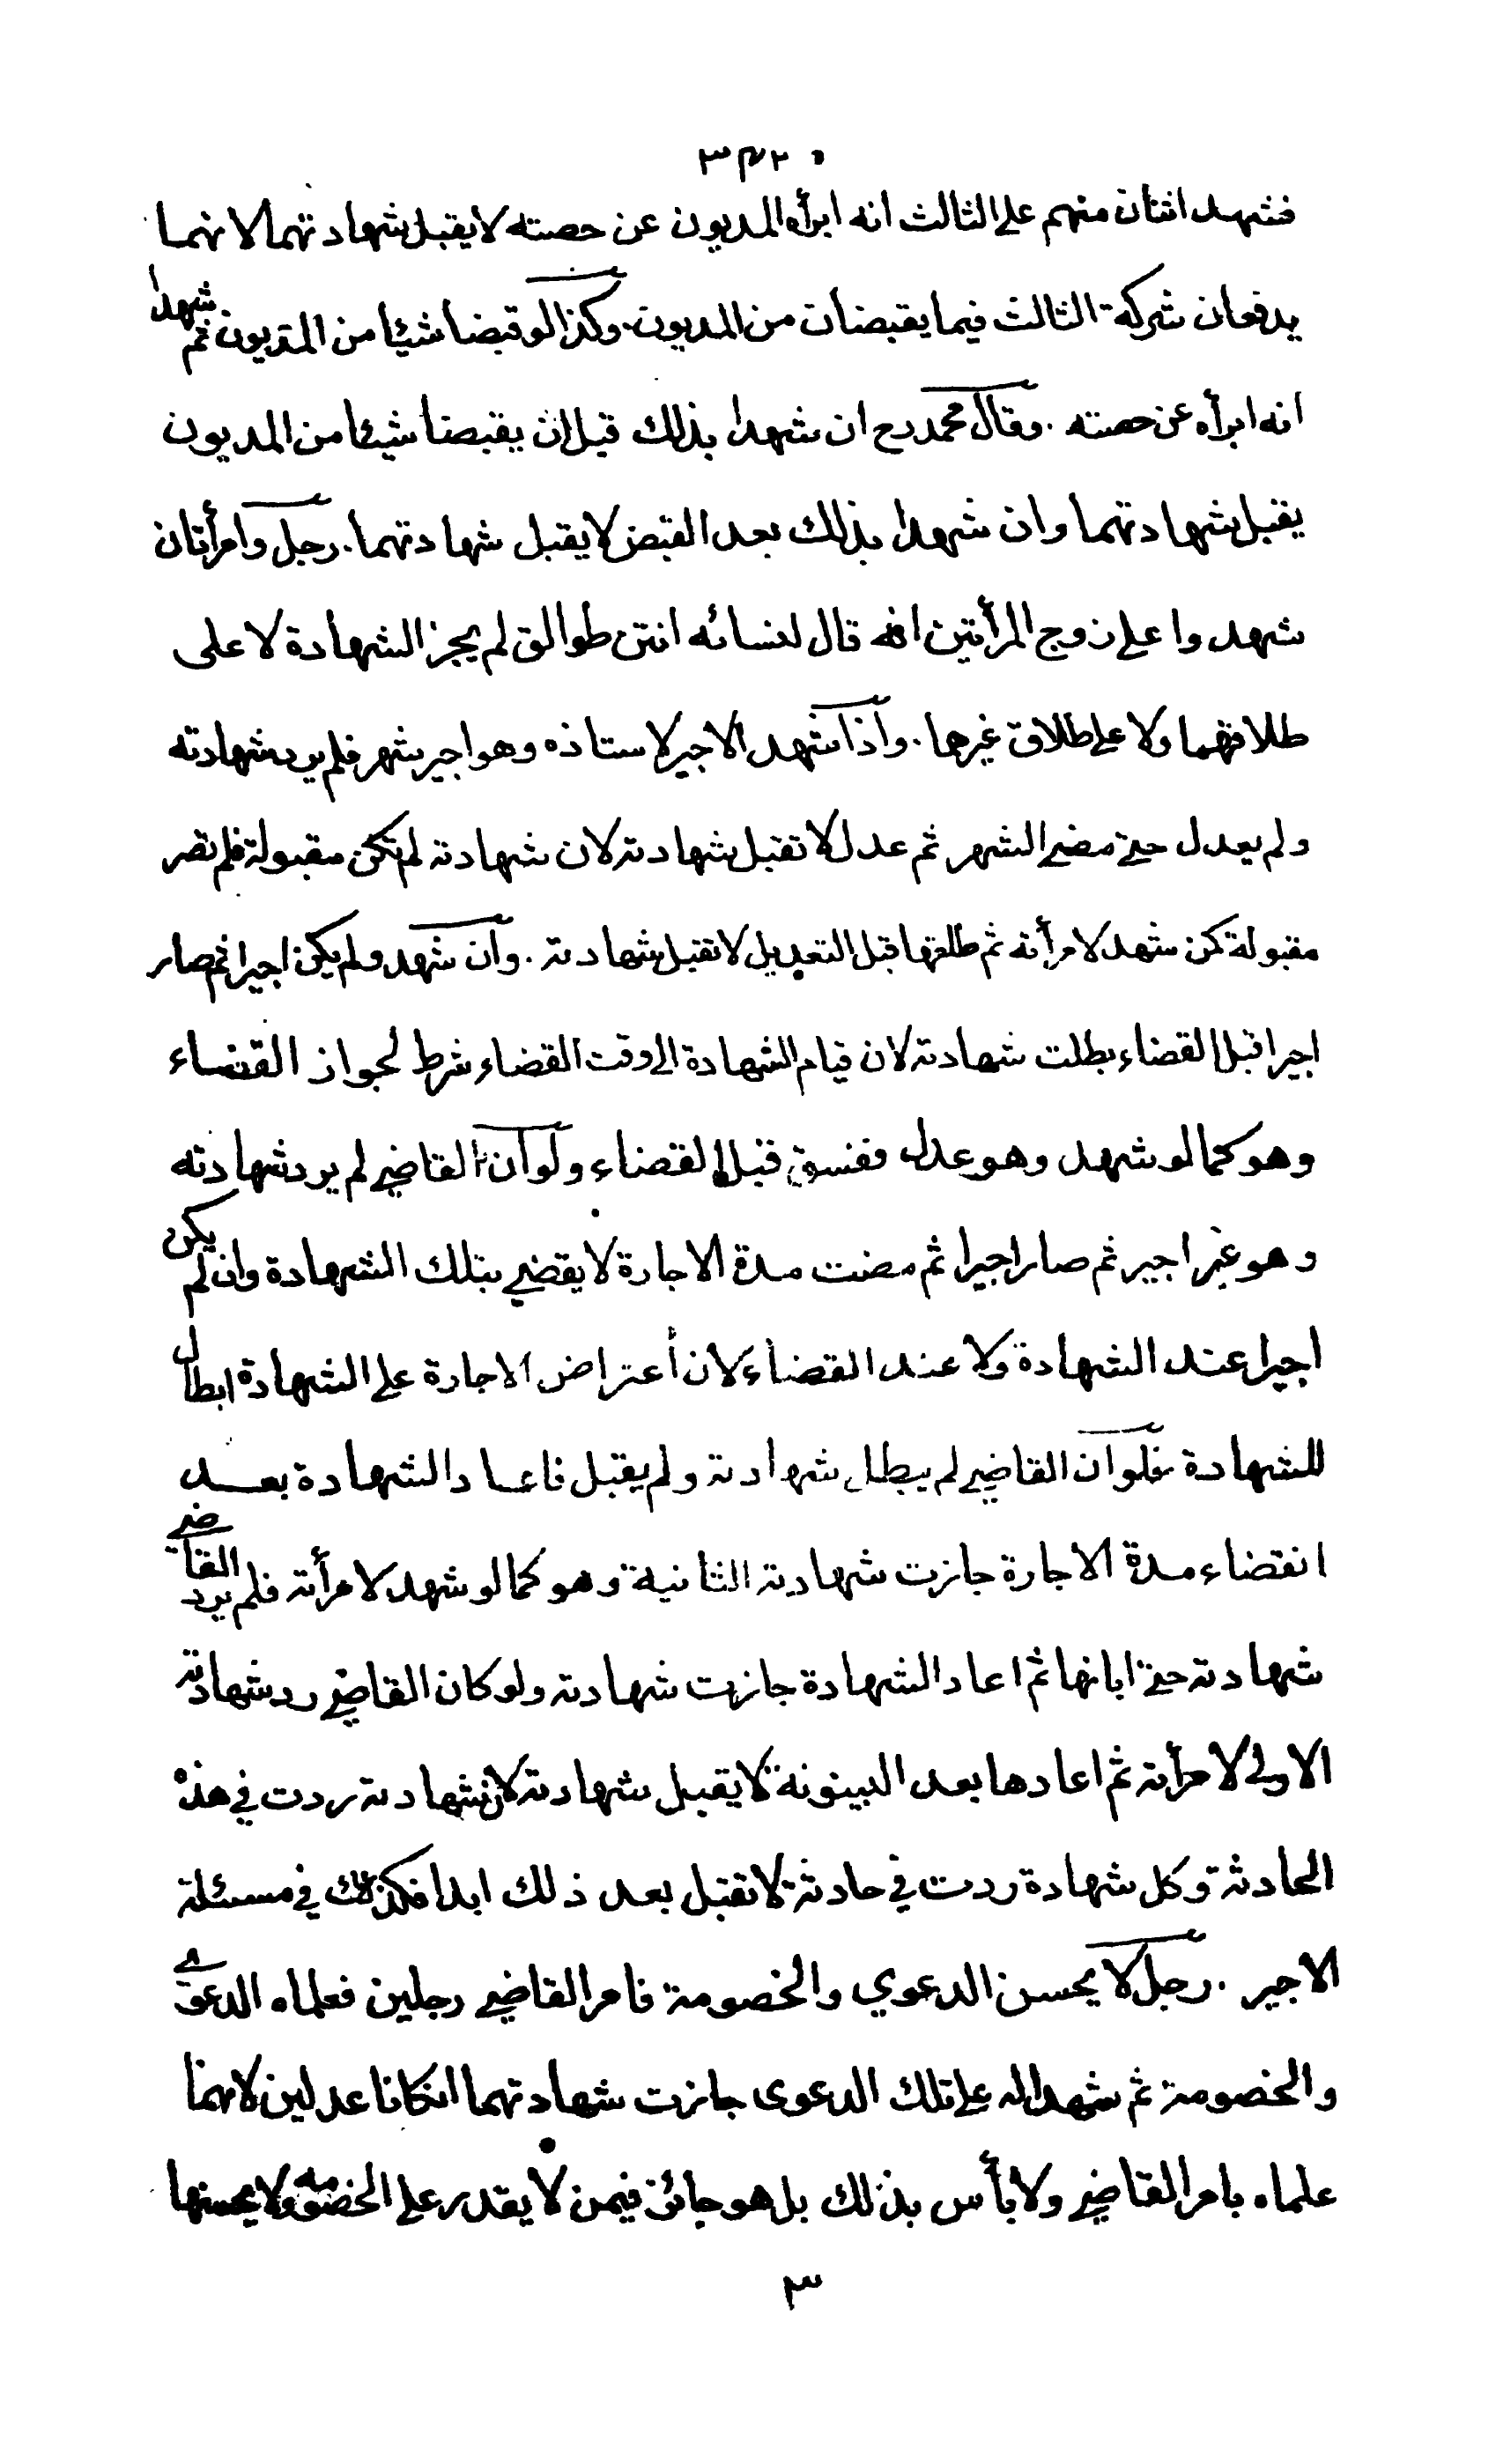 ٣٤٢٠
فشهد اثنان منهم على الثالث انه ابرأه المديون عن حصته لا يقبل شهادتهما لانهما
يدفعان شركة الثالث فيما يقبضان من المديون. وكذا لو قبضا شيئا من المديون ثم شهدا
انه ابرأه عن حصته. وقال محمد رح ان شهدا بذلك قبل ان يقبضا شيئا من المديون
يقبل شهادتهما وان شهدا بذلك بعد القبض لا يقبل شهادتهما. رجل وامرأتان
شهدوا على زوج المرأتين انه قال لنسائه انتن طوالق لم يجز الشهادة لا على
طلاقهما ولا على طلاق غيرهما. واذا شهد الاجير لاستاذه وهو اجير شهر فلم يرد شهادته
ولم يعدل حتى مضى الشهر ثم عدل لا تقبل شهادته لان شهادته لم تكن مقبولة فلم تصر
مقبولة كمن شهد لامرأته ثم طلقها قبل التعديل لا تقبل شهادته. وان شهد ولم يكن اجيرا ثم صار
اجيرا قبل القضاء بطلت شهادته لان قيام الشهادة الى وقت القضاء شرط لجواز القضاء
وهو كما لو شهد وهو عدل ففسق قبل القضاء ولو ان القاضي لم يرد شهادته
وهو غير اجير ثم صار اجيرا ثم مضت مدة الاجارة لا يقضي بتلك الشهادة وان لم يكن
اجيرا عند الشهادة ولا عند القضاء لان أعتراض الاجارة على الشهادة ابطال
للشهادة فلو ان القاضي لم يبطل شهادته ولم يقبل فاعاد الشهادة بعد
انقضاء مدة الاجارة جازت شهادته الثانية وهو كما لو شهد لامرأته فلم يرد القاضي
شهادته حتى ابانها ثم اعاد الشهادة جازت شهادته ولو كان القاضي رد شهادته
الاولى لامرأته ثم اعادها بعد البينونة لا يقبل شهادته لان شهادته ردت في هذه
الحادثة وكل شهادة ردت في حادثة لا تقبل بعد ذلك ابدا فكذلك في مسئلة
الاجير. رجل لا يحسن الدعوي والخصومة فامر القاضي رجلين فعلماه الدعوى
والخصومة ثم شهدا له على تلك الدعوى جازت شهادتهما انكانا عدلين لانهما
علماه بامر القاضي ولا بأس بذلك بل هو جائز فيمن لا يقدر على الخصومة ولا يحسنها
٣